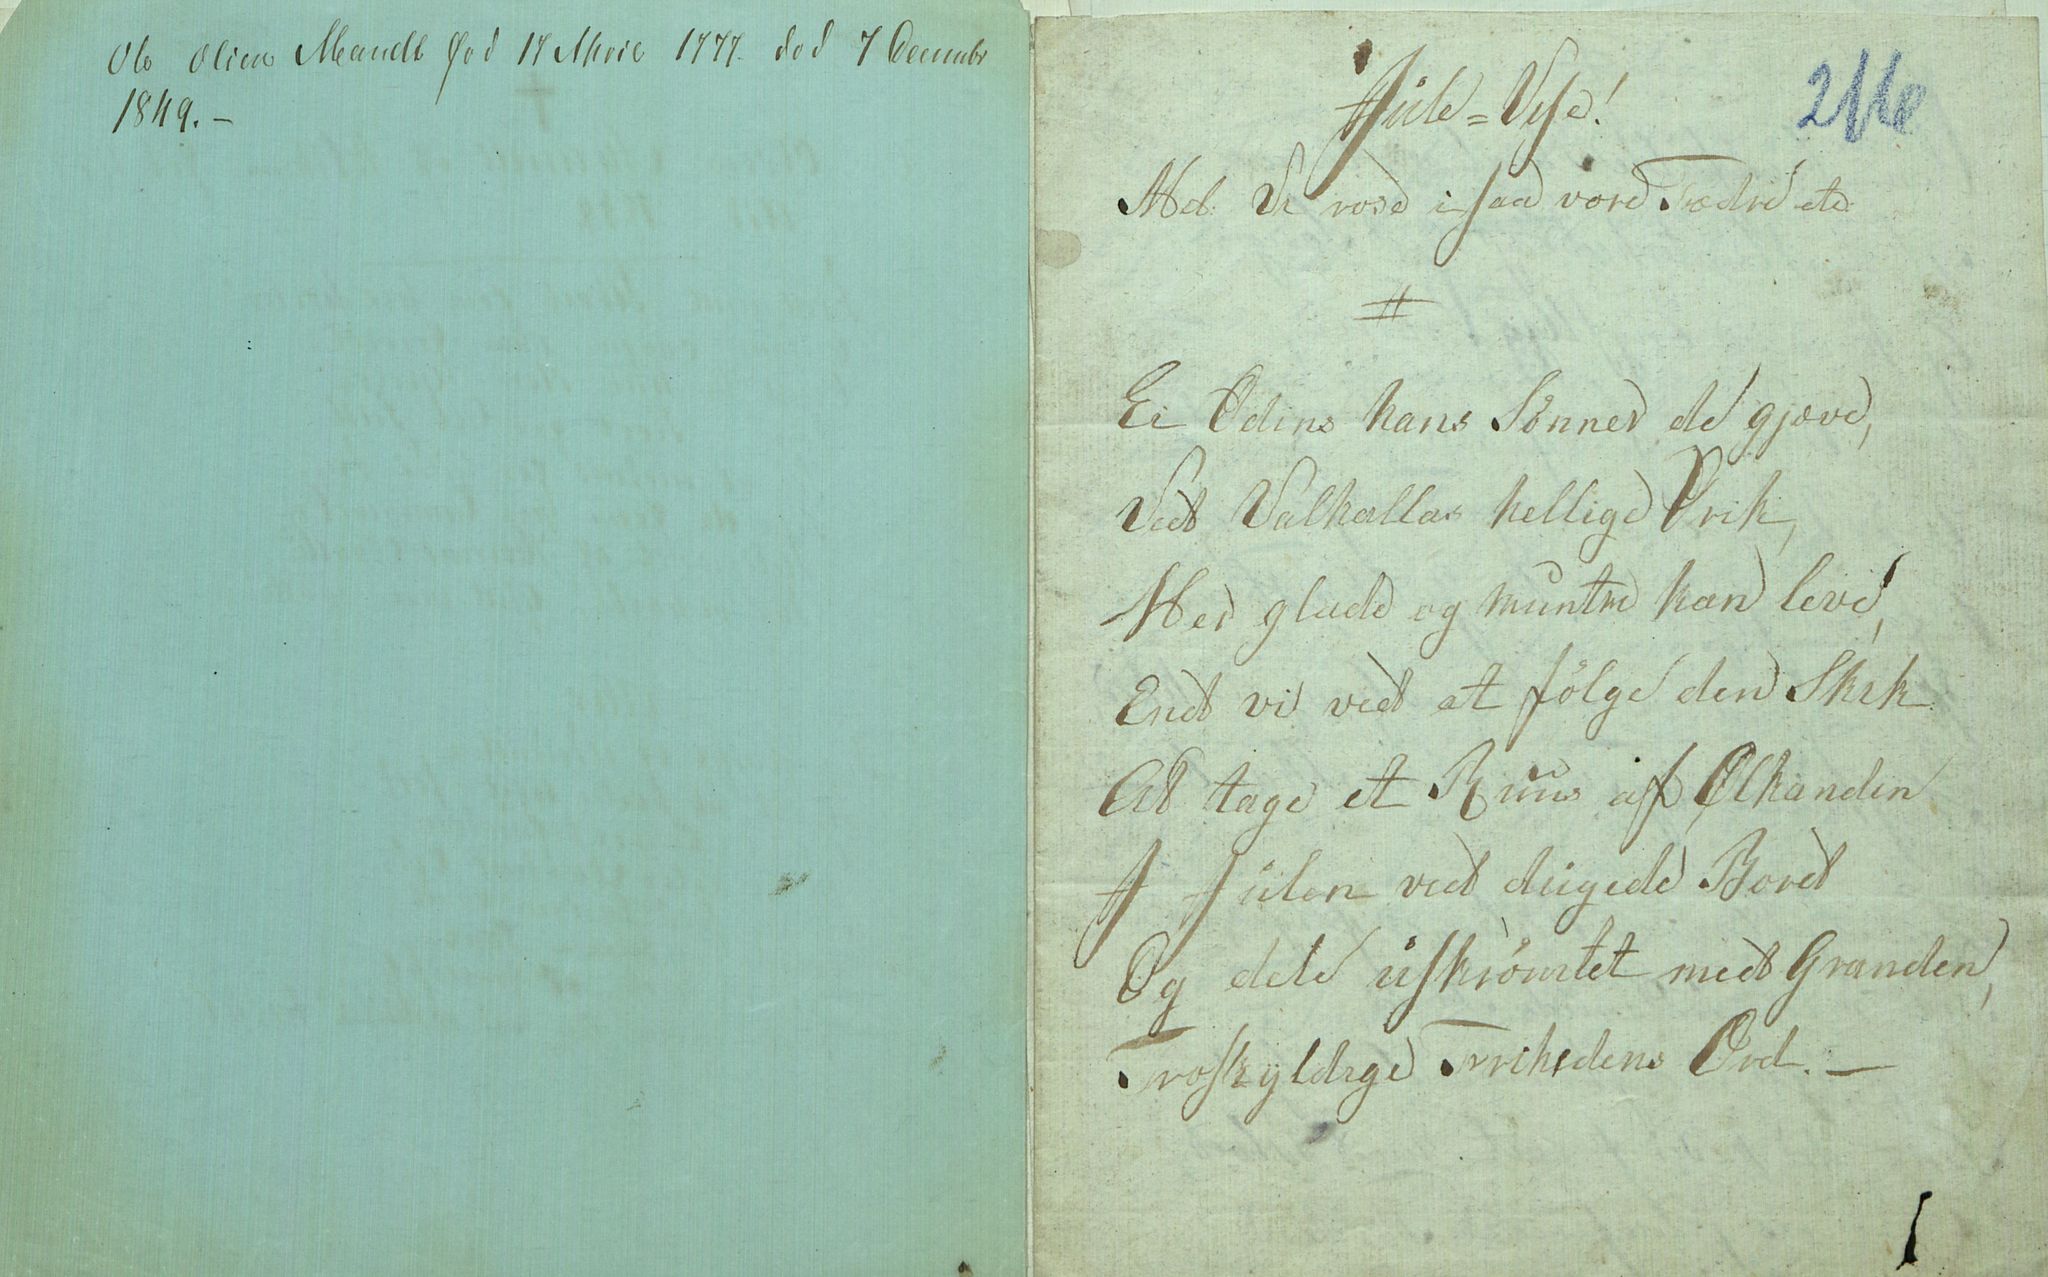 Ole Olsen Mandt Fød 17 April 1777. død 7 December
1849. —
Jüle = Vise!
Mel. Vi rose i saa vore Fædre etc.
Ei Odins hans Sönner de gjæve,
Ved Valhallas hellige Drik,
Mer glade og muntre kan leve,
End vi ved at fölge den Skik
At tage et Ruus af Ølkanden
I Jülen ved dügede Bord
Og dele üskrömtet med Granden,
Troskyldige Frihedens Ord. —